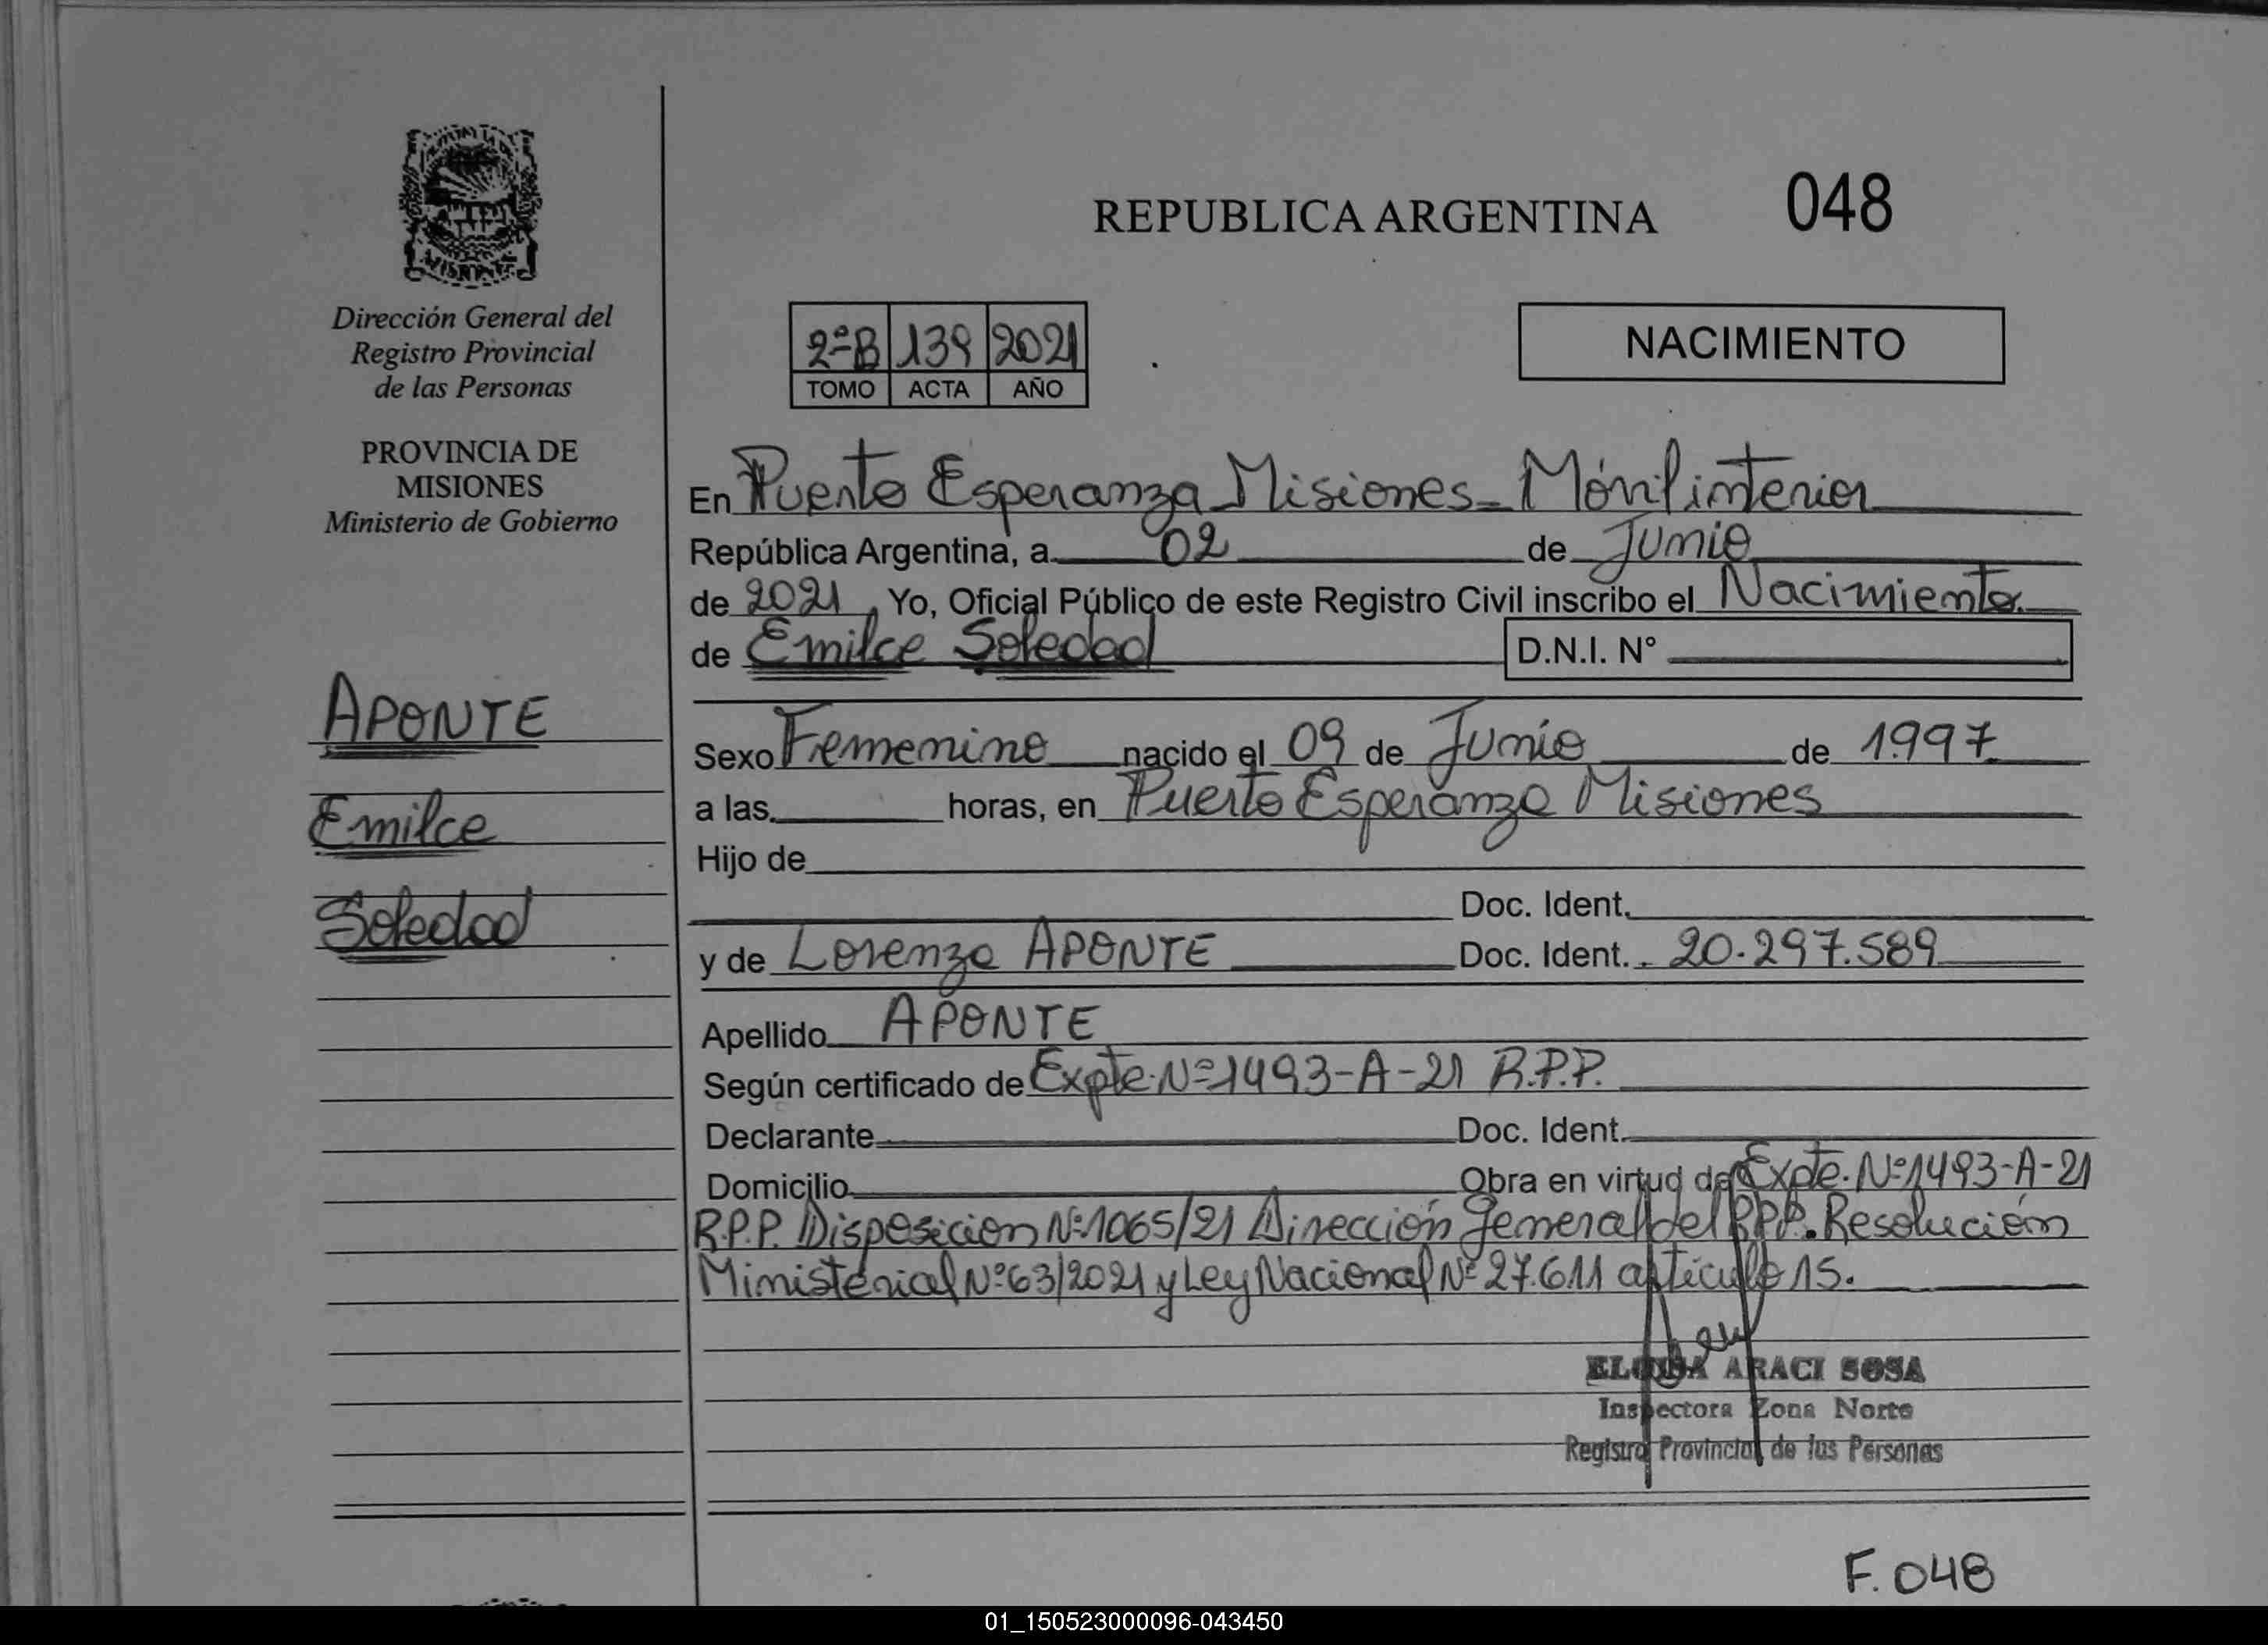 REPUBLICA ARGENTINA
048
Dirección General del
Registro Provincial
de las Personas
PROVINCIA DE
MISIONES
Ministerio de Gobierno
2ºB 139 2021
TOMO ACTA AÑO
NACIMIENTO
En Puerto Esperanza Misiones - Móvil interior
República Argentina, a 02 de Junio
de 2021, Yo, Oficial Público de este Registro Civil inscribo el Nacimiento
de Emilce Soledad D.N.I. Nº
APONTE
Emilce
Soledad
Sexo Femenino nacido el 09 de Junio de 1.997
a las horas, en Puerto Esperanza Misiones
Hijo de
Doc. Ident.
y de Lorenzo APONTE Doc. Ident. 20.297.589
Apellido APONTE
Según certificado de Expte. Nº 1493-A-21 R.P.P.
Declarante Doc. Ident.
Domicilio Obra en virtud de Expte. Nº 1493-A-21
R.P.P. Disposicion Nº 1065/21 Dirección General del R.P.P. Resolución
Ministerial Nº 63/2021 y Ley Nacional Nº 27.611 artículo 15.
ARACI SOSA
Inspectora Zona Norte
Registro Provincial de las Personas
F. 048
01_150523000096-043450